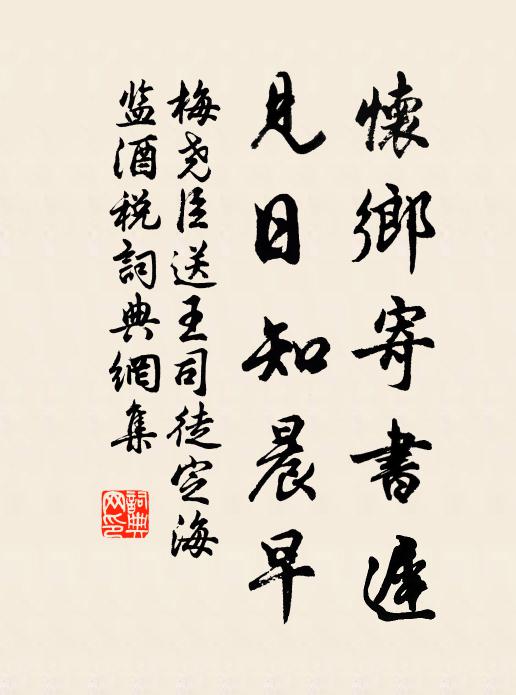 懷鄉寄書遲
見日知晨早
梅堯臣送王司徒定海
監酒税詞典網集
詞典
网印